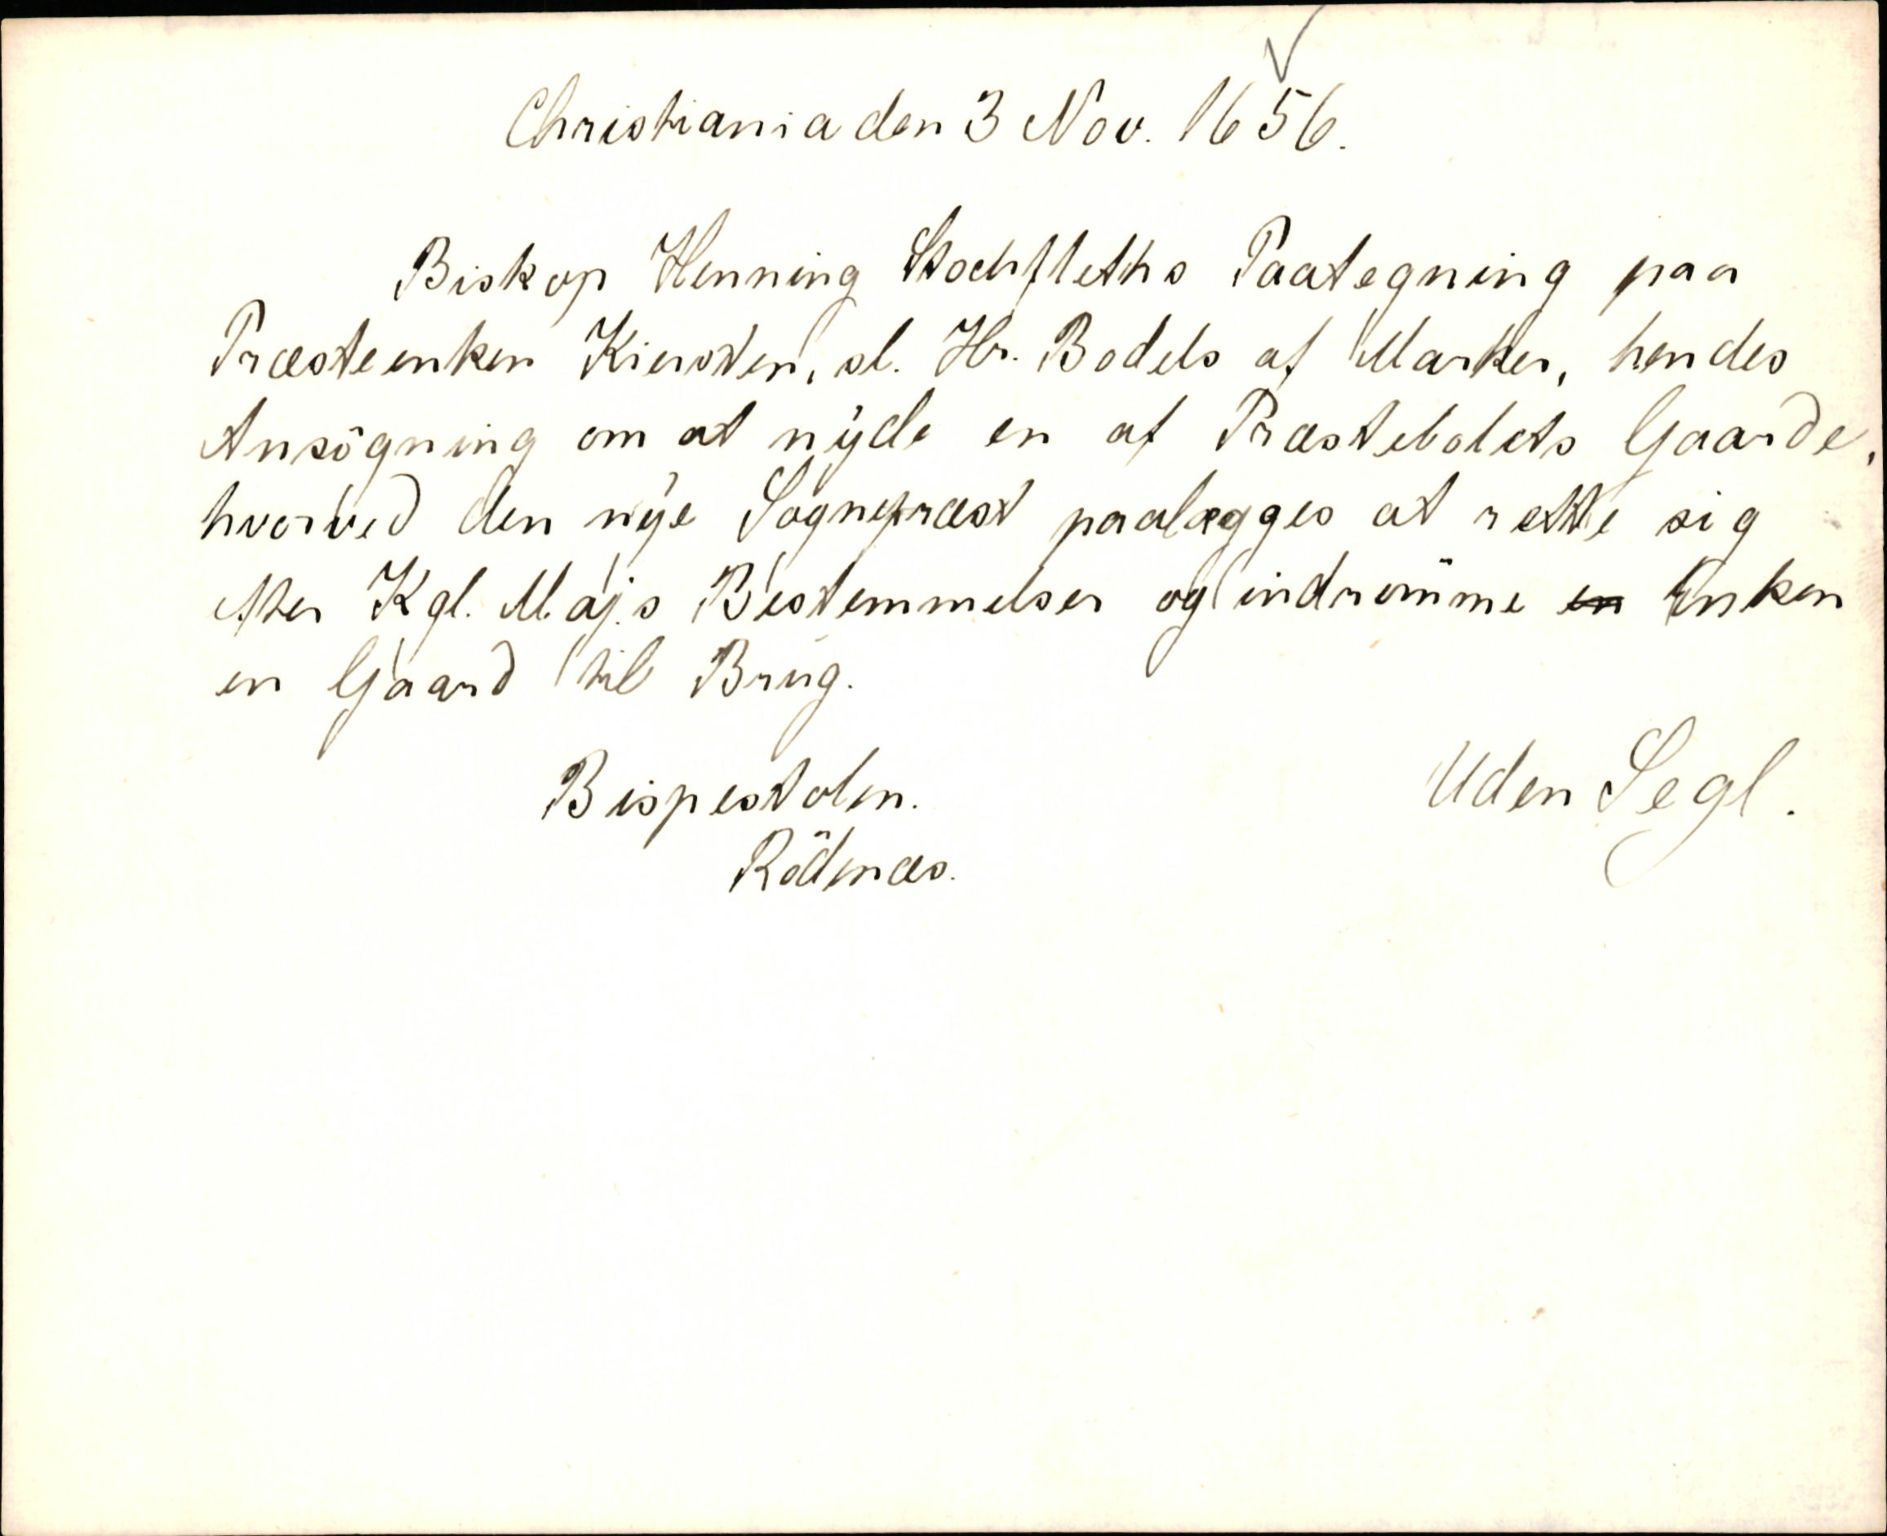 Christiania den 3 Nov. 1656.
Biskop Henning Stochfleths Paategning paa
Præsteenken Kiersten, sl. Hr. Bodels af Marker, hendes
Ansögning om at nyde en af Præstebolets Gaarde,
hvorved den nye Sognepræst paalægges at rette sig
efter Kgl. Maj.s Bestemmelser og indrömme en Enken
en Gaard til Brug.
Bispestolen.
Uden Segl.
Rödenæs.